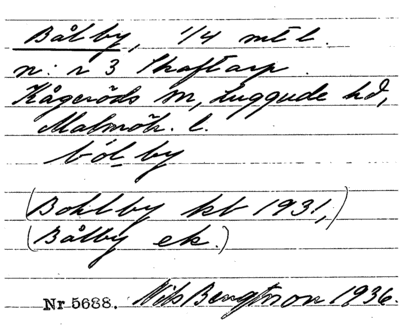 Bålby, 1/4 mtl.
n:r 3 Skaftarp
Kågeröds sn, Luggude hd,
Malmöh. l.
bo'l_by
(Bohlby kb 1931,)
(Bålby ek.)
Nr 5688. Nils Bengtsson 1936.